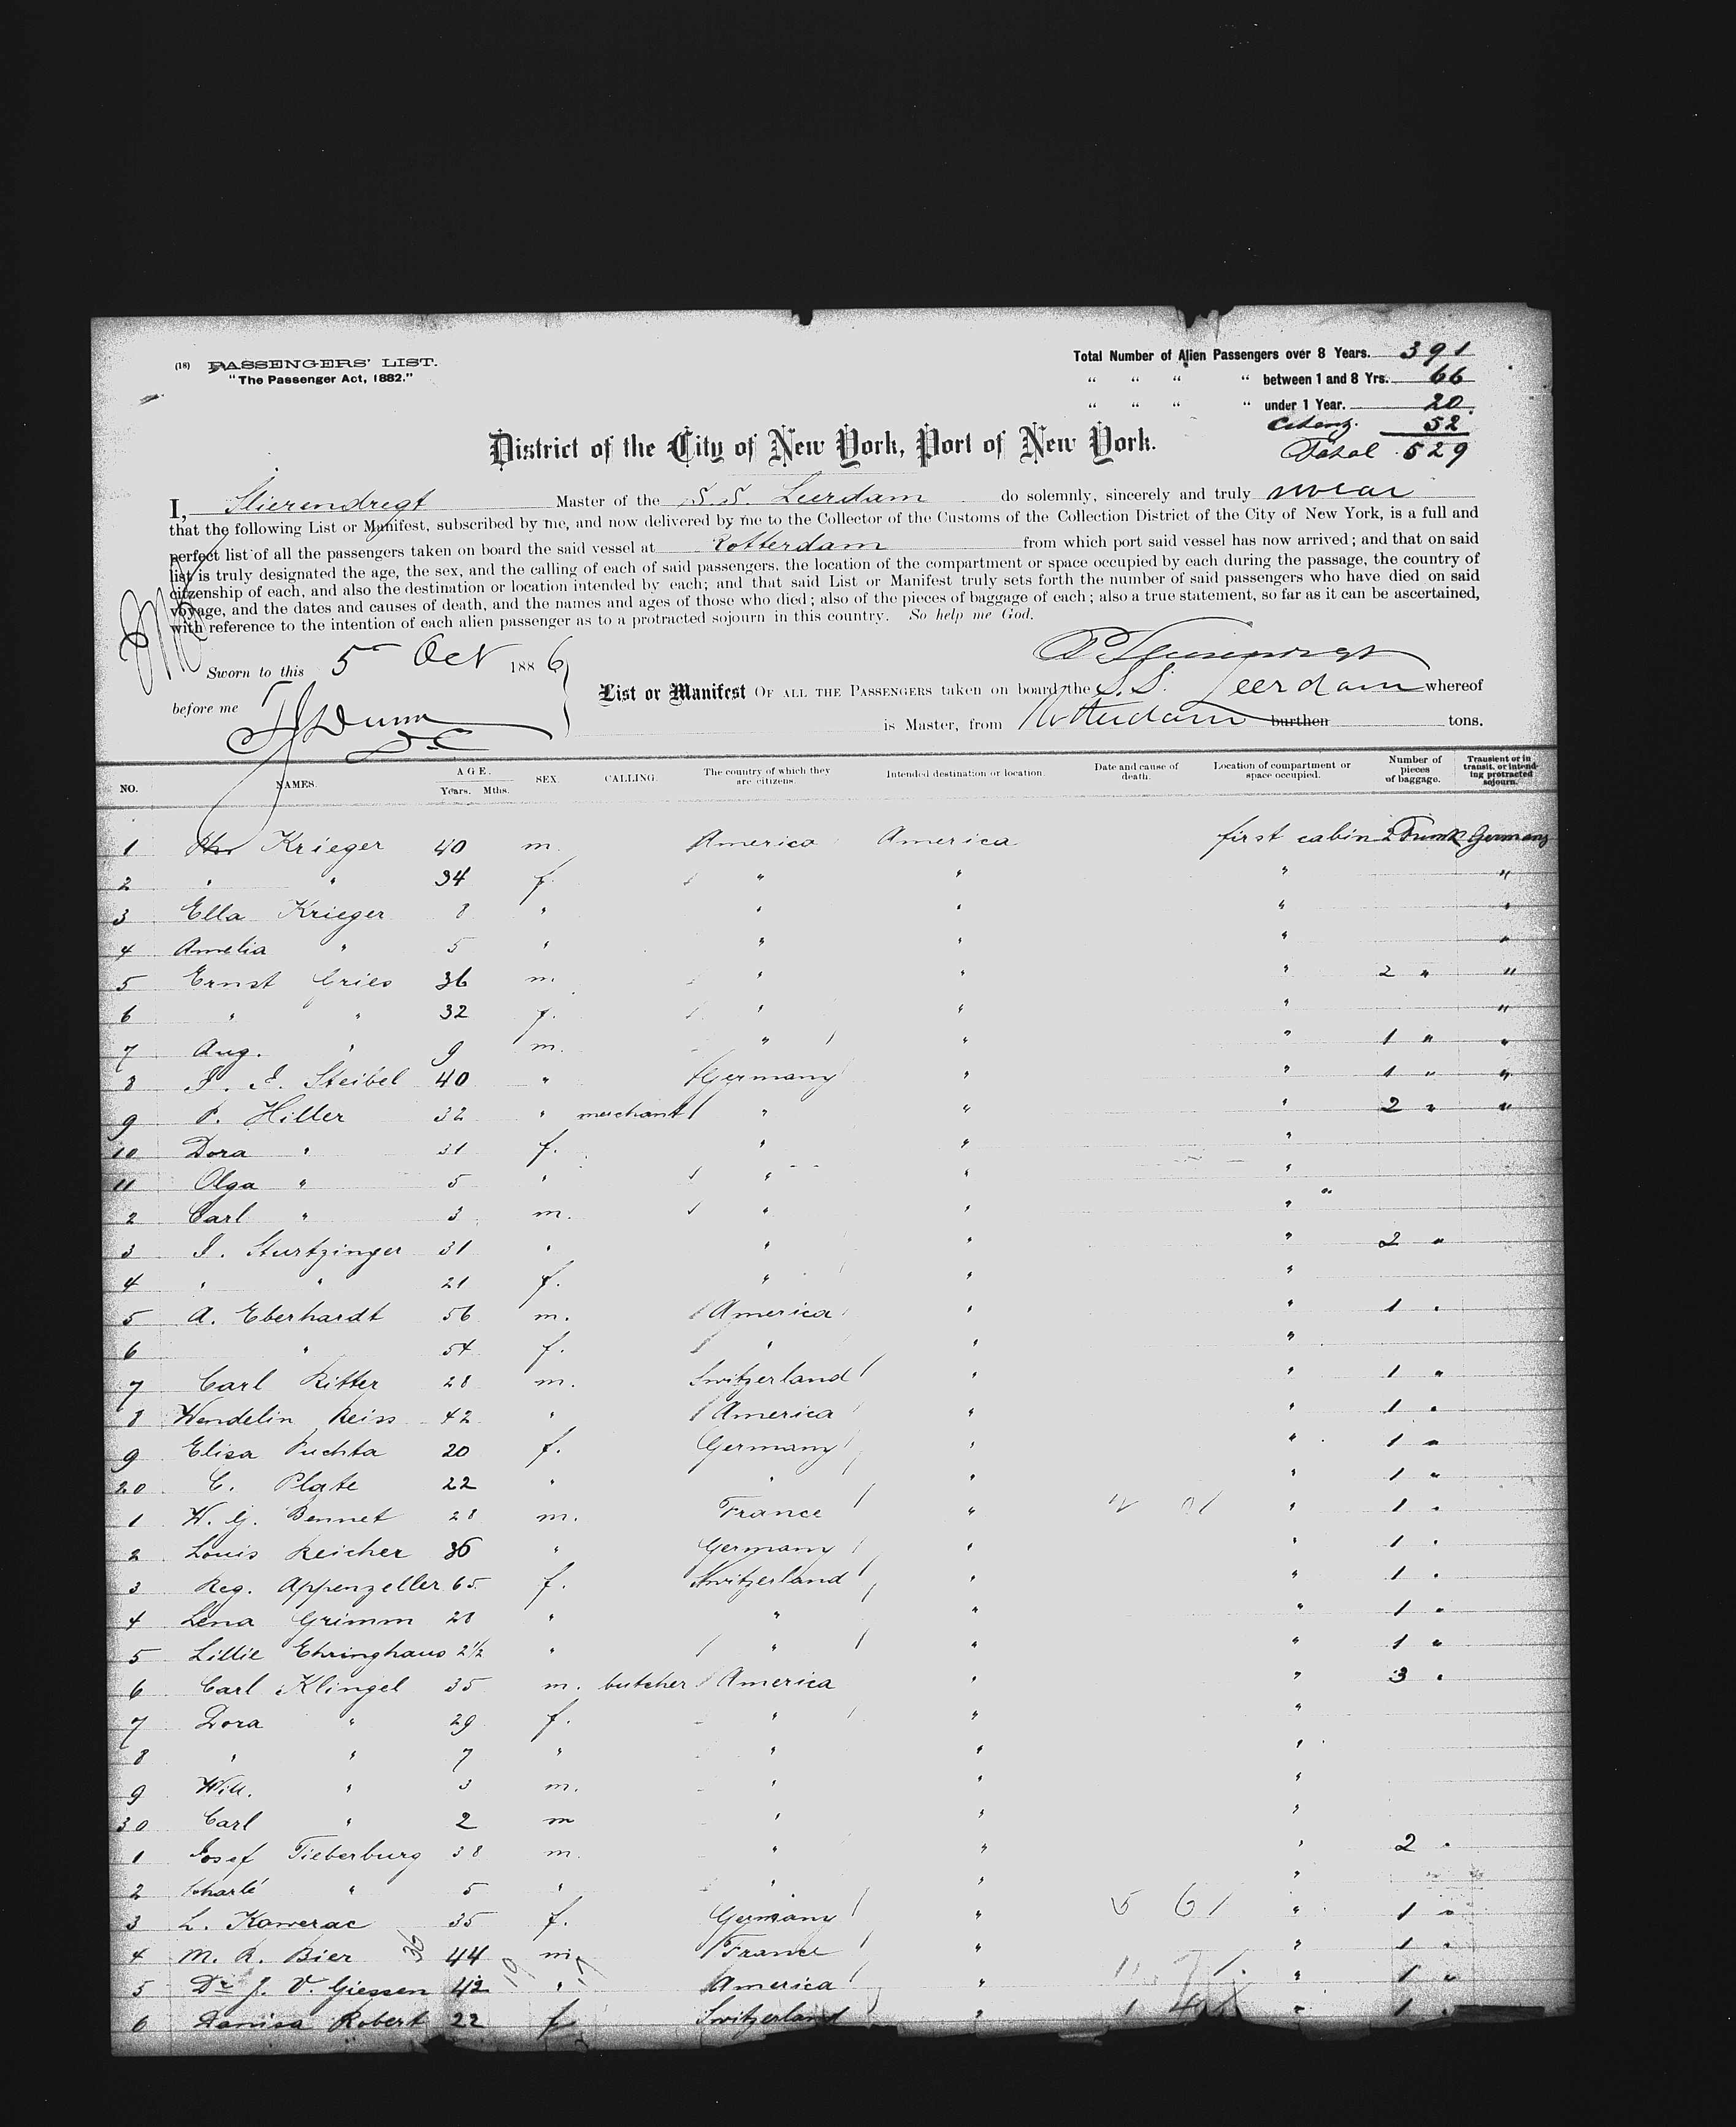 (18) PASSENGERS' LIST.
"The Passenger Act, 1882."
Total Number of Alien Passengers over 8 Years. 391
" " " " between 1 and 8 Yrs. 66
" " " " under 1 Year. 20.
52
Total 529
District of the City of New York, Port of New York.
I, Stierendregt Master of the S.S. Leerdam do solemnly, sincerely and truly swear
that the following List or Manifest, subscribed by me, and now delivered by me to the Collector of the Customs of the Collection District of the City of New York, is a full and
perfect list of all the passengers taken on board the said vessel at Rotterdam from which port said vessel has now arrived; and that on said
list is truly designated the age, the sex, and the calling of each of said passengers, the location of the compartment or space occupied by each during the passage, the country of
citizenship of each, and also the destination or location intended by each; and that said List or Manifest truly sets forth the number of said passengers who have died on said
voyage, and the dates and causes of death, and the names and ages of those who died; also of the pieces of baggage of each; also a true statement, so far as it can be ascertained,
with reference to the intention of each alien passenger as to a protracted sojourn in this country. So help me God.
Sworn to this 5 Oct 1886
before me
List or Manifest OF ALL THE PASSENGERS taken on board the S.S. Leerdam whereof
is Master, from Rotterdam burthen tons.
NO. NAMES. AGE. Years. Mths. SEX. CALLING. The country of which they are citizens. Intended destination or location. Date and cause of death. Location of compartment or space occupied. Number of pieces of baggage. Transient or in transit, or intending protracted sojourn.
1 Krieger 40 m. America America first cabin 2 Trunk Germany
2 " " 34 f. " " " "
3 Ella Krieger 8 " " " " "
4 Amelia " 5 " " " " "
5 Ernst Gries 36 m. " " " 2 " "
6 " " 32 f. " " " "
7 Aug. " 9 m. " " " 1 " "
8 Steibel 40 " Germany " " 1 " "
9 P. Hiller 32 " merchant " " " 2 " "
10 Dora " 31 f. " " "
11 Olga " 5 " " " "
2 Carl " 3 m. " " "
3 J. Sturtzinger 31 " " " " 2 "
4 " " 21 f. " " "
5 A. Eberhardt 56 m. America " " 1 "
6 " 54 f. " " "
7 Carl Ritter 28 m. Switzerland " " 1 "
8 Wendelin Reiss 42 " America " " 1 "
9 Elisa Puchta 20 f. Germany " " 1 "
20 C. Plate 22 " " " " 1 "
1 W. G. Bennet 28 m. France " " 1 "
2 Louis Reicher 36 " Germany " " 1 "
3 Reg. Appenzeller 65 f. Switzerland " " 1 "
4 Lena Grimm 28 " " " " 1 "
5 Lillie Ehringhaus 2½ " " " " 1 "
6 Carl Klingel 35 m. butcher America " " 3 "
7 Dora " 29 f. " " "
8 " " 7 " " " "
9 Will. " 3 m. " " "
30 Carl " 2 m " " "
1 Josef Tieberburg 38 m. " " " 2 "
2 " 5 " " " "
3 L. Kawerac 35 f. Germany " " 1 "
4 M. R. Bier 44 m. France " " 1 "
5 Dr J. V. Giessen 42 " America " " 1 "
6 Robert 22 f Switzerland " " 1 "